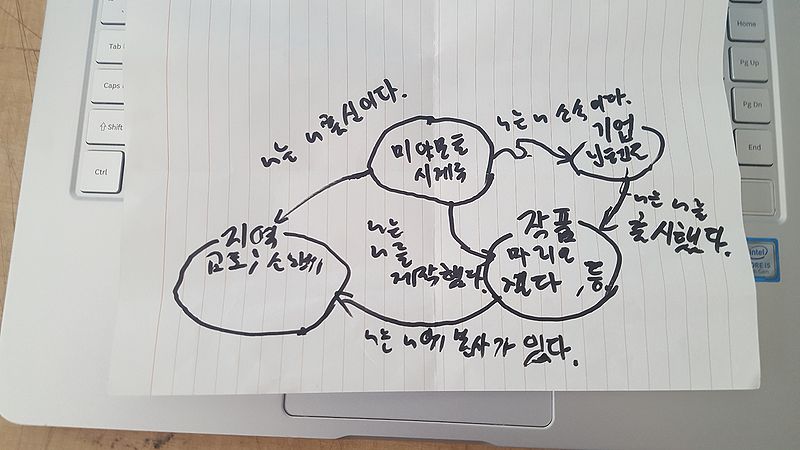 Tab
Caps
Shift
Ctrl
Home
Pg Up
Pg Dn
End
intel
CORE i5
~는 ~출신이다.
~는 ~ 소속이다.
미야모토
시게루
기업
닌텐도
~는 ~를
출시했다.
지역
교토, 소노베
~는
~를
제작했다.
작품
마리오
젤다, 등
~는 ~에 본사가 있다.